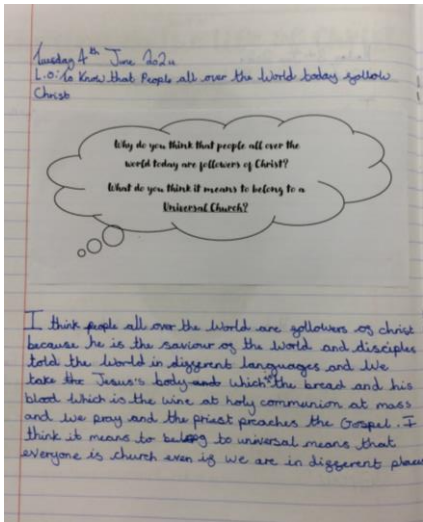 Tuesday 4th June 2024
L.O: To Know that People all over the World today follow
Christ
Why do you think that people all over the
world today are followers of Christ?
What do you think it means to belong to a
Universal Church?
I think people all over the World are followers of christ
because he is the saviour of the World and disciples
told the World in different languages and We
take the Jesus's body which is the bread and his
blood which is the wine at holy communion at mass
and we pray and the priest preaches the Gospel. I
think it means to belong to universal means that
everyone is church even if we are in different places